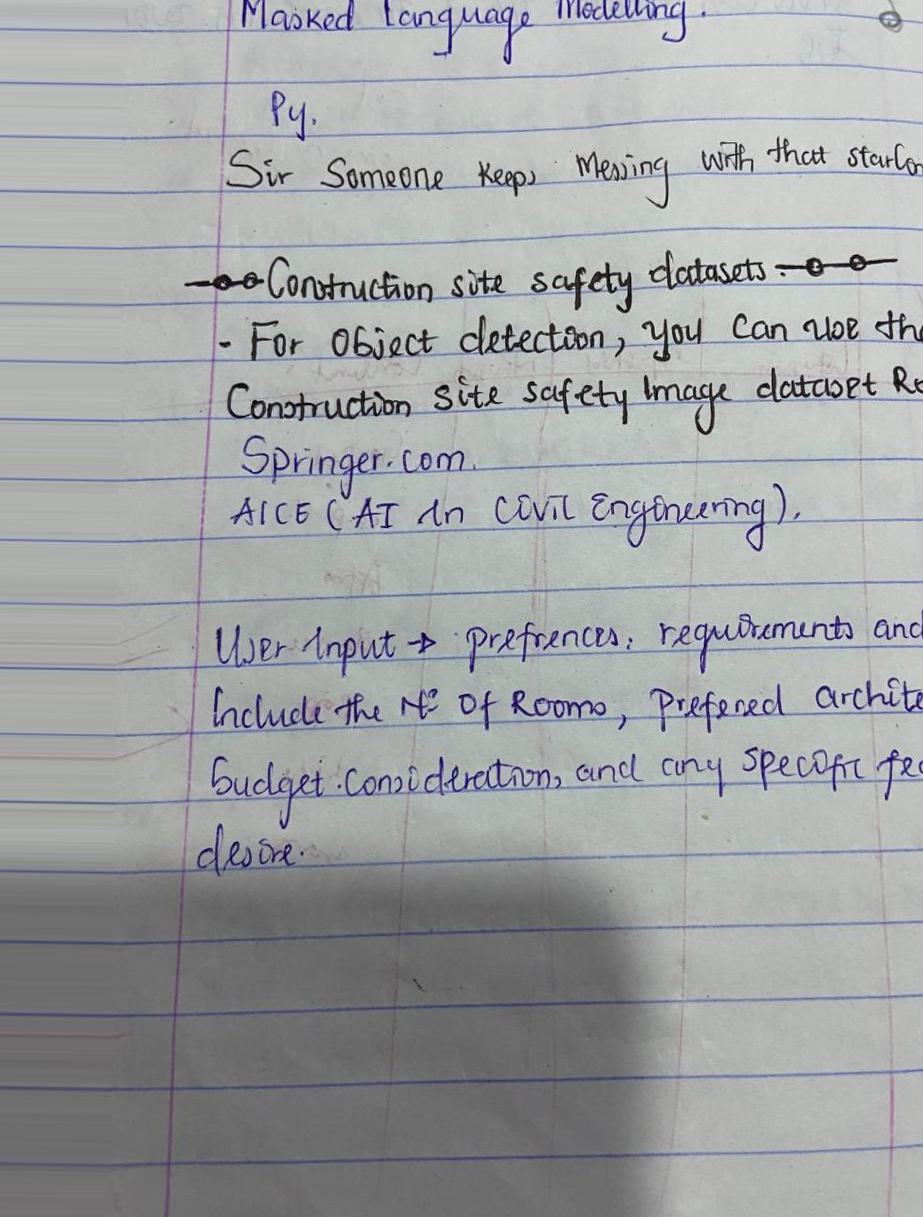 Masked Language Modelling.
Py.
Sir Someone Keeps Messing with that
Construction site safety datasets.
- For Object detection, you can use
Construction site safety Image dataset
Springer.com.
AICE (AI in Civil Engineering).
User Input → prefrences, requirements and
Include the Nº Of Rooms, Prefered
budget considerations, and any specific
desire.